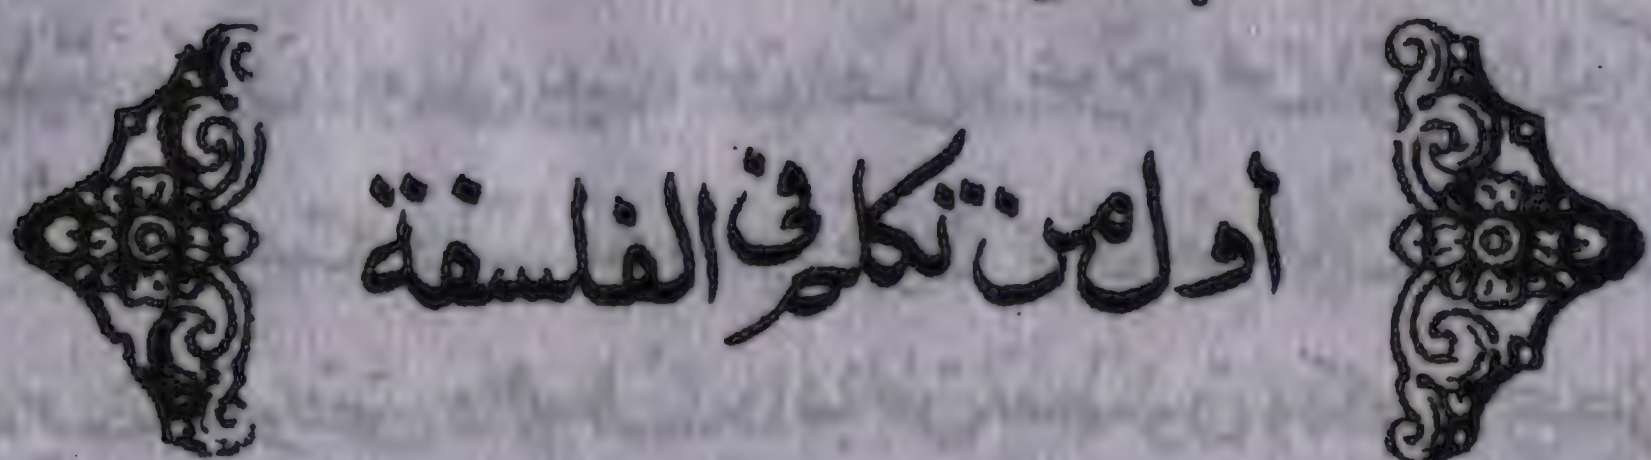 أول من تكلم فى الفلسفة